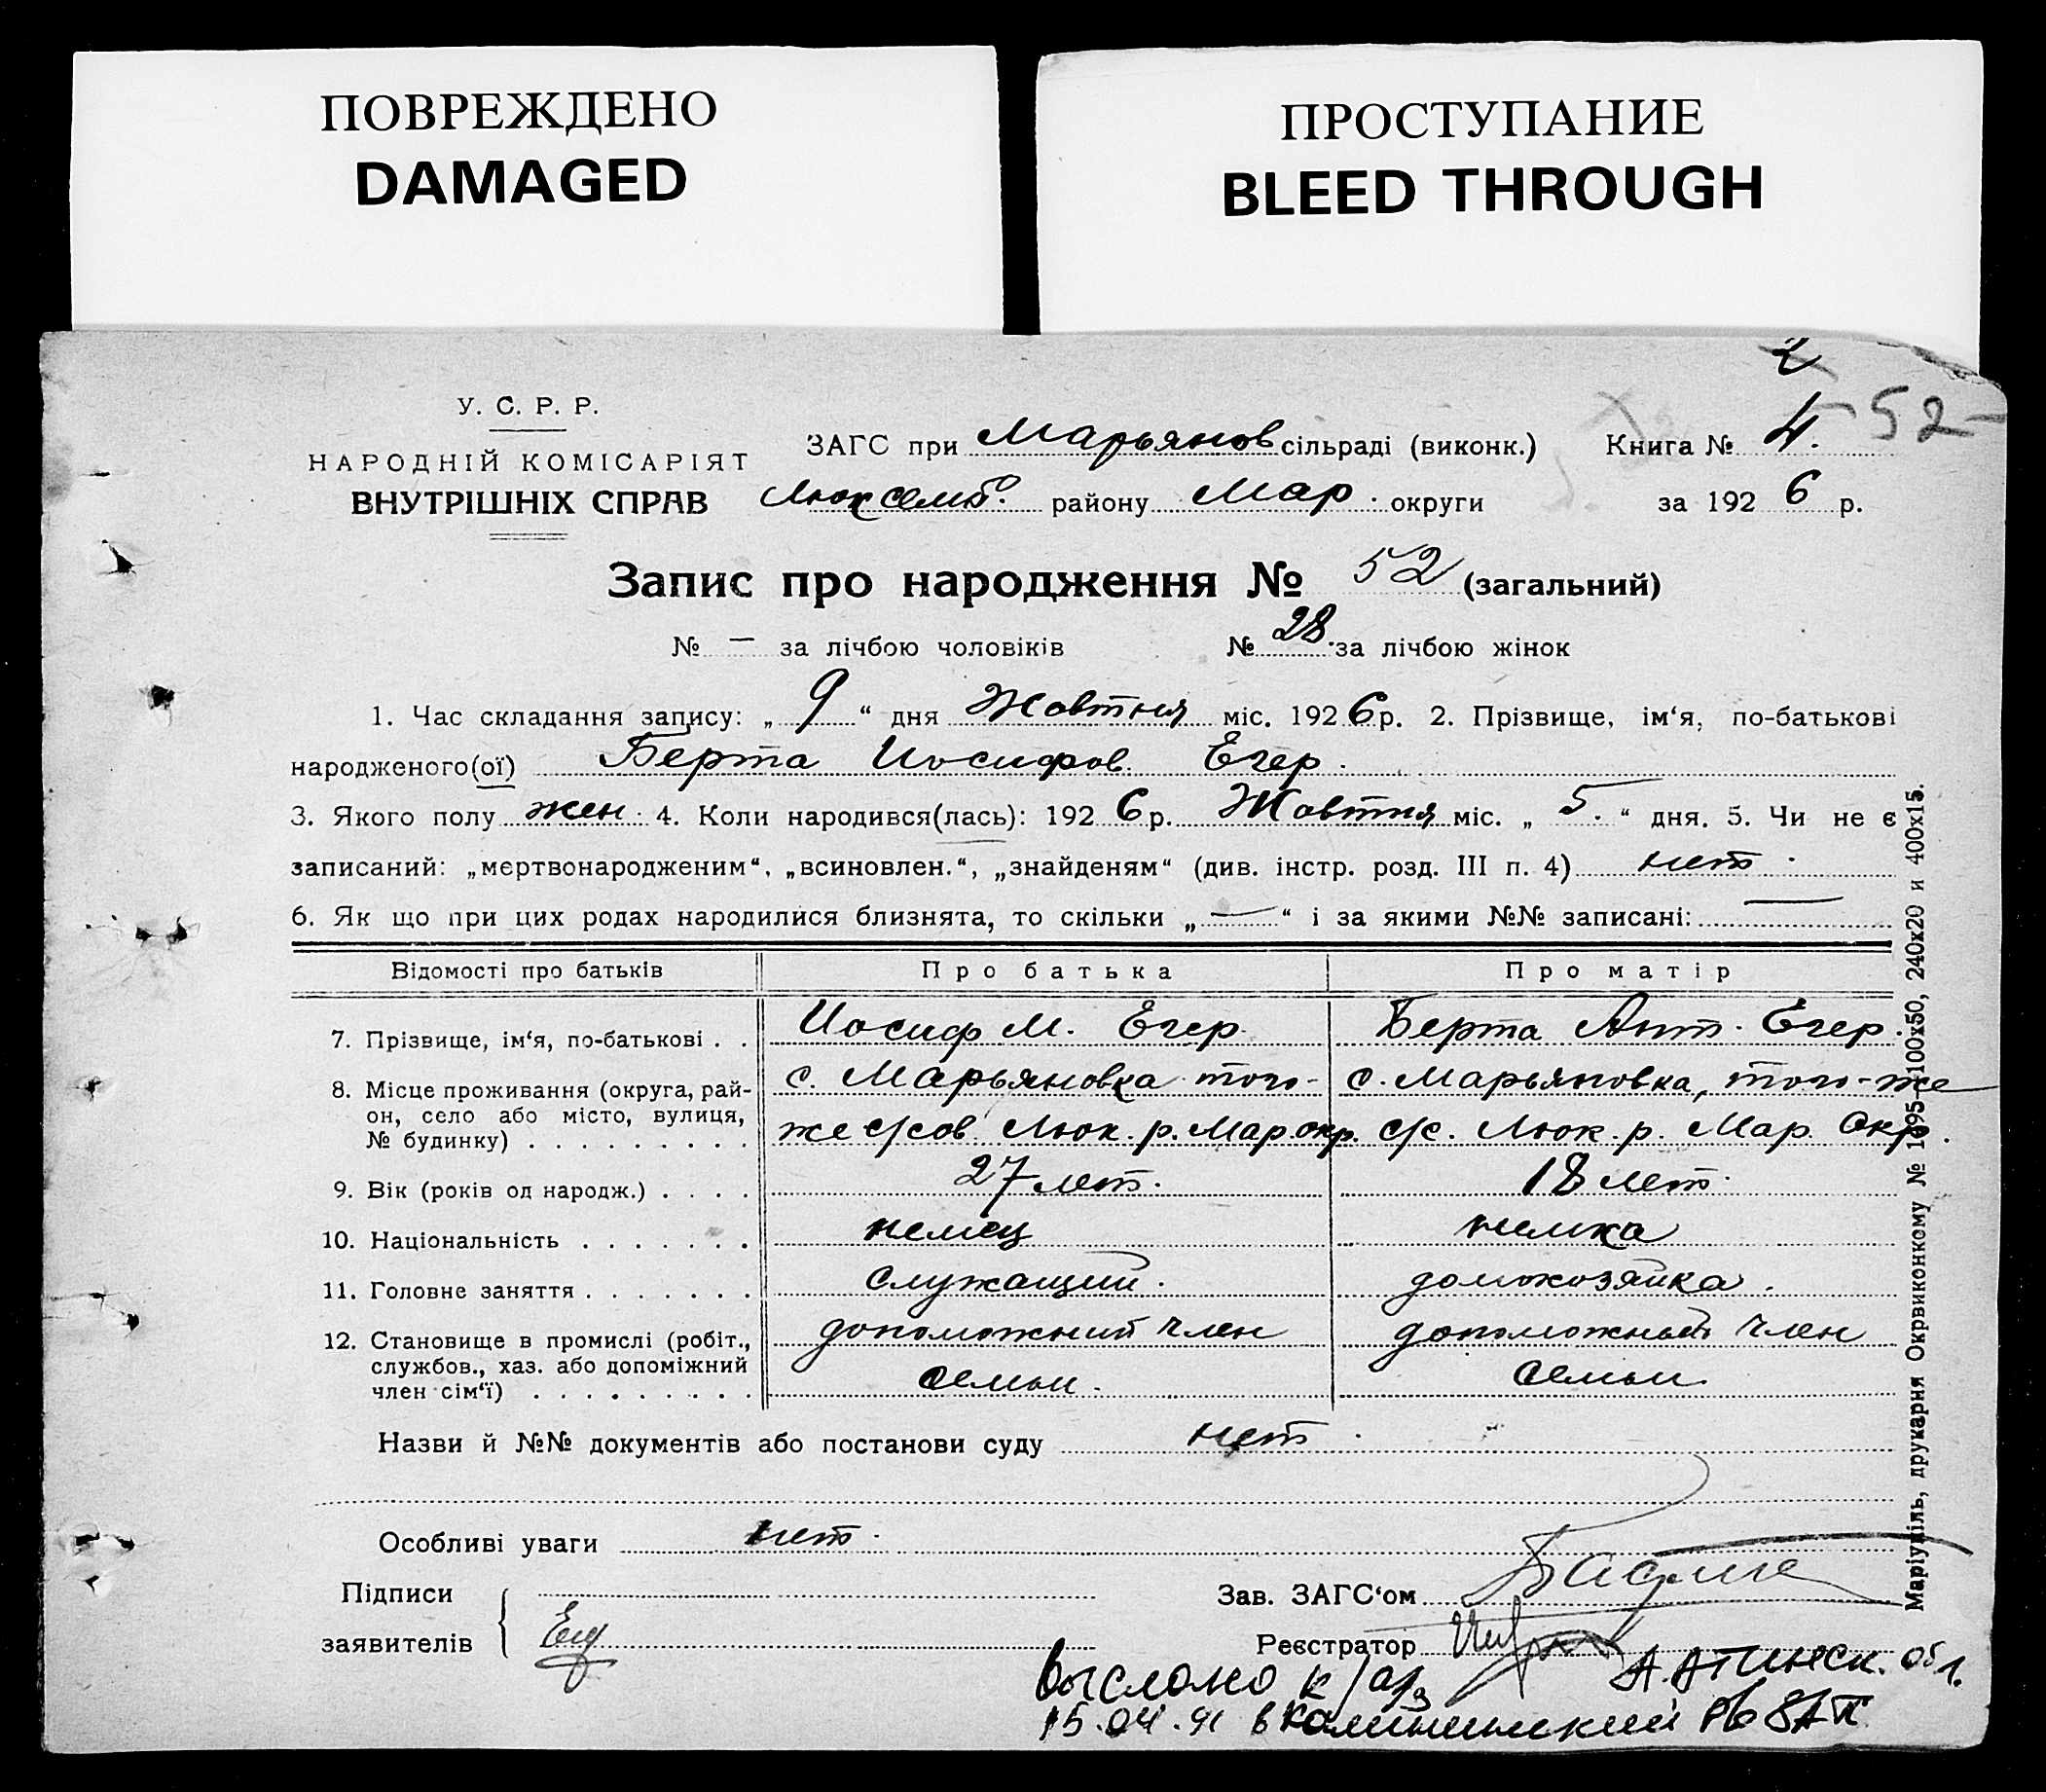 ПОВРЕЖДЕНО
DAMAGED
ПРОСТУПАНИЕ
BLEED THROUGH
2
У. С. Р. Р.
НАРОДНІЙ КОМІСАРІЯТ
ВНУТРІШНІХ СПРАВ
ЗАГС при Марьянов сільраді (виконк.) Книга № 4. 52
Люксемб. району Мар. округи за 1926 р.
Запис про народження № 52 (загальний)
№ — за лічбою чоловіків № 28. за лічбою жінок
1. Час складання запису: „9“ дня Жовтня міс. 1926 р. 2. Прізвище, ім‘я, по-батькові
народженого(ої) Берта Иосифов. Егер.
3. Якого полу жен. 4. Коли народився(лась): 1926 р. Жовтня міс. „5.“ дня. 5. Чи не є
записаний: „мертвонародженим“, „всиновлен.“, „знайденям“ (див. інстр. розд. III п. 4) нет.
6. Як що при цих родах народилися близнята, то скільки „—“ і за якими №№ записані: —
Відомості про батьків Про батька Про матір
7. Прізвище, ім‘я, по-батькові . . Иосиф М. Егер. Берта Ант. Егер.
8. Місце проживання (округа, рай- с. Марьяновка того- с. Марьяновка, того-же
он, село або місто, вулиця,
№ будинку) . . . . . . . . . же с/сов. Люк. р. Мар. окр. с/с. Люк. р. Мар. Окр.
9. Вік (років од народж.) . . . . 27 лет. 18 лет.
10. Національність . . . . . . . немец немка
11. Головне заняття . . . . . . . служащий. домохозяйка.
12. Становище в промислі (робіт., допоможний член допоможный член
службов., хаз. або допоміжний
член сім‘ї) . . . . . . . . . семьи. семьи.
Назви й №№ документів або постанови суду нет.
Особливі уваги нет.
Підписи
заявителів
Зав. ЗАГС‘ом
Реєстратор
Выслано к/арз А.Атинск. обл.
15.04.91 в Калининский РБ ЗАГС
Маріупіль, друкарня Окрвиконкому № 1695—100х50, 240х20 и 400х15.